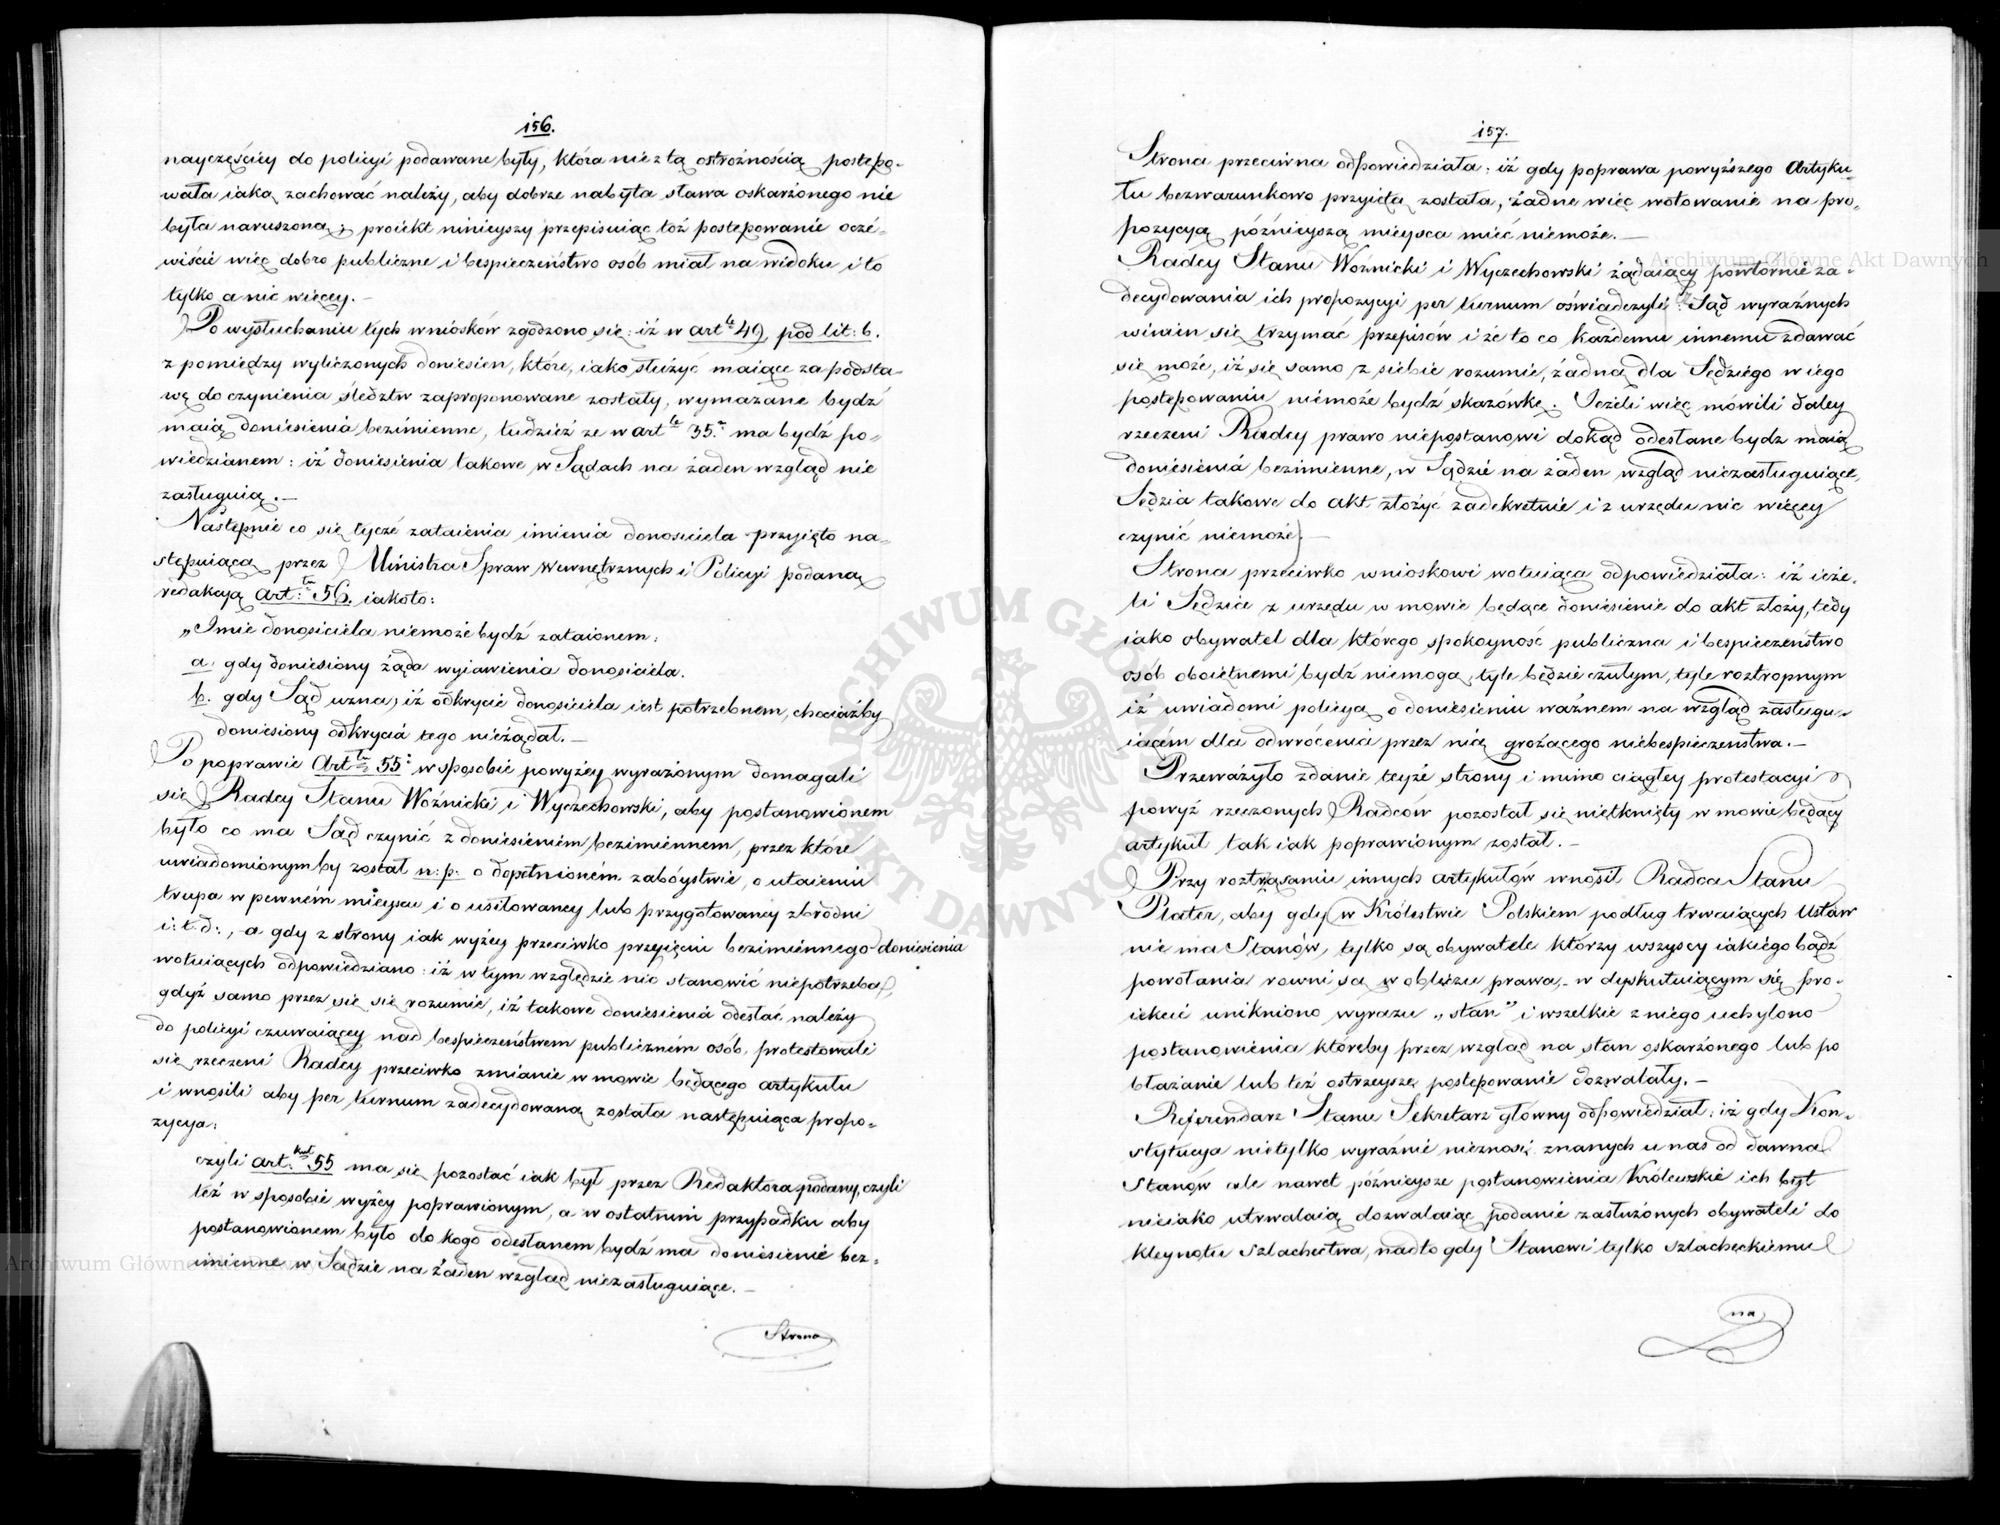 156.
nayczęściey do policyi podawane były, która nie z tą ostrożnością postępo-
wała iaką zachować należy, aby dobrze nabyta sława oskarżonego nie
była naruszoną; proiekt ninieyszy przepisuiąc toż postępowanie oczé-
wiście więc dobro publiczne i bespieczeństwo osób miał na widoku i to
tylko a nic więcey.-
Po wysłuchaniu tych wniosków zgodzono się: iż w art łe 49, pod lit: b.
z pomiędzy wyliczonych doniesien, które, iako służyć maiące za podsta-
wę do czynienia śledztw zaproponowane zostały, wymazane bydź
maią doniesienia bezimienne, tudzież że w art łe 35. ma bydź po-
wiedzianem: iż doniesienia takowe w Sądach na żaden wzgląd nie
zasługuią.-
Następnie co się tycze zataienia imienia donosiciela przyięto na-
stępuiącą przez Ministra Spraw Wewnętrznych i Policyi podaną
redakcyą art: łu 56. iakoto:
„Imie donosiciela niemoże bydź zataionem:
a. gdy doniesiony żąda wyiawienia donosiciela.
b. gdy Sąd uzna, iż odkrycie donosiciela iest potrzebnem, chociażby
doniesiony odkrycia tego nieżądał.-
Po poprawie Art łu 55 w sposobie powyżey wyrażonym domagali
się Radcy Stanu Woźnicki i Wyczechowski, aby postanowionem
było co ma Sąd czynić z doniesieniem bezimiennem, przez które
uwiadomionym by został n: p: o dopełnioném zabóystwie, o utaieniu
trupa w pewném mieyscu i o usiłowaney lub przygotowaney zbrodni
i: t. d:, - a gdy z strony iak wyżey przeciwko przyięciu bezimiennego doniesienia
wotuiących odpowiedziano: iż w tym względzie nic stanowić niepotrzeba,
gdyż samo przez się się rozumie, iż takowe doniesienia odesłać należy
do policyi czuwaiącey nad bespieczeństwem publiczném osób, protestowali
się rzeczeni Radcy przeciwko zmianie w mowie będącego artykułu
i wnosili aby per turnum zadecydowaną została następuiąca propo-
zycya:
czyli art. kuł 55 ma się pozostać iak był przez Redaktora podany, czyli
też w sposobie wyżey poprawionym, a w ostatnim przypadku aby
postanowionem było do kogo odesłanem bydź ma doniesienie bez-
imienne w Sądzie na żaden wzgląd niezasługuiące.-
Strona
157.
Strona przeciwna odpowiedziała: iż gdy poprawa powyższego Artyku-
łu bezwarunkowo przyięta została, żadne więc wotowanie na pro-
pozycyą późnieyszą mieysca mieć niemoże.-
Radcy Stanu Woźnicki i Wyczechowski żądaiący powtórnie za-
decydowania ich propozycyi per turnum oświadczyli: iż Sąd wyraźnych
winien się trzymać przepisów i że to co każdemu innemu zdawać
się może, iż się samo z siebie rozumie, żadną dla Sędziego w iego
postępowaniu niemoże bydź skazówkę. Jeżeli więc mówili daley
rzeczeni Radcy prawo niepostanowi dokąd odesłane bydź maią
doniesienia bezimienne, w Sądzie na żaden wzgląd niezasługuiące,
Sędzia takowe do akt złożyć zadekretuie i z urzędu nic więcey
czynić niemoże.-
Strona przeciwko wnioskowi wotuiąca odpowiedziała: iż ieże-
li Sędzia z urzędu w mowie będące doniesienie do akt złoży, tedy
iako obywatel dla którego spokoyność publiczna i bespieczeństwo
osób oboiętnemi bydź niemogą, tyle będzie czułym, tyle roztropnym
iż uwiadomi policyą o doniesieniu ważnem na wzgląd zasługu-
iącém dla odwrócenia przez nię grożącego niebespieczenstwa.-
Przeważyło zdanie teyże strony i mimo ciągłey protestacyi
powyż rzeczonych Radców pozostał się nietknięty w mowie będący
artykuł tak iak poprawionym został.-
Przy roztrząsaniu innych artykułów wnosił Radca Stanu
Plater, aby gdy w Królestwie Polskiem podług trwaiących Ustaw
nie ma Stanów, tylko są obywatele którzy wszyscy iakiego bądź
powołania równi są w obliczu prawa,- w dyskutuiącym się pro-
iekcie unikniono wyrazu „stan” i wszelkie z niego uchylono
postanowienia któreby przez wzgląd na stan oskarżonego lub po
błażanie lub też ostrzeysze postępowanie dozwalały.-
Referendarz Stanu Sekretarz główny odpowiedział: iż gdy Kon-
stytucya nietylko wyraźnie nieznosi znanych u nas od dawna
Stanów ale nawet późnieysze postanowienia Królewskie ich byt
nieiako utrwalaią dozwalaiąc podanie zasłużonych obywateli do
kleynotu szlachectwa, nadto gdy Stanowi tylko szlacheckiemu
na
Archiwum Główne Akt Dawnych
Archiwum Główne Akt Dawnych
ARCHIWUM GŁÓWNE AKT DAWNYCH